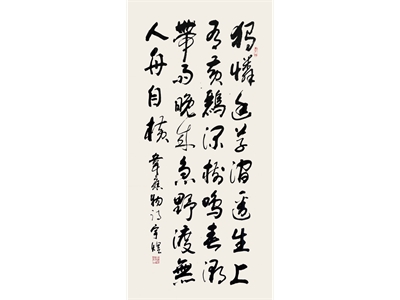 獨憐幽草澗邊生上
有黃鸝深樹鳴春潮
帶雨晚來急野渡無
人舟自橫
韋應物詩